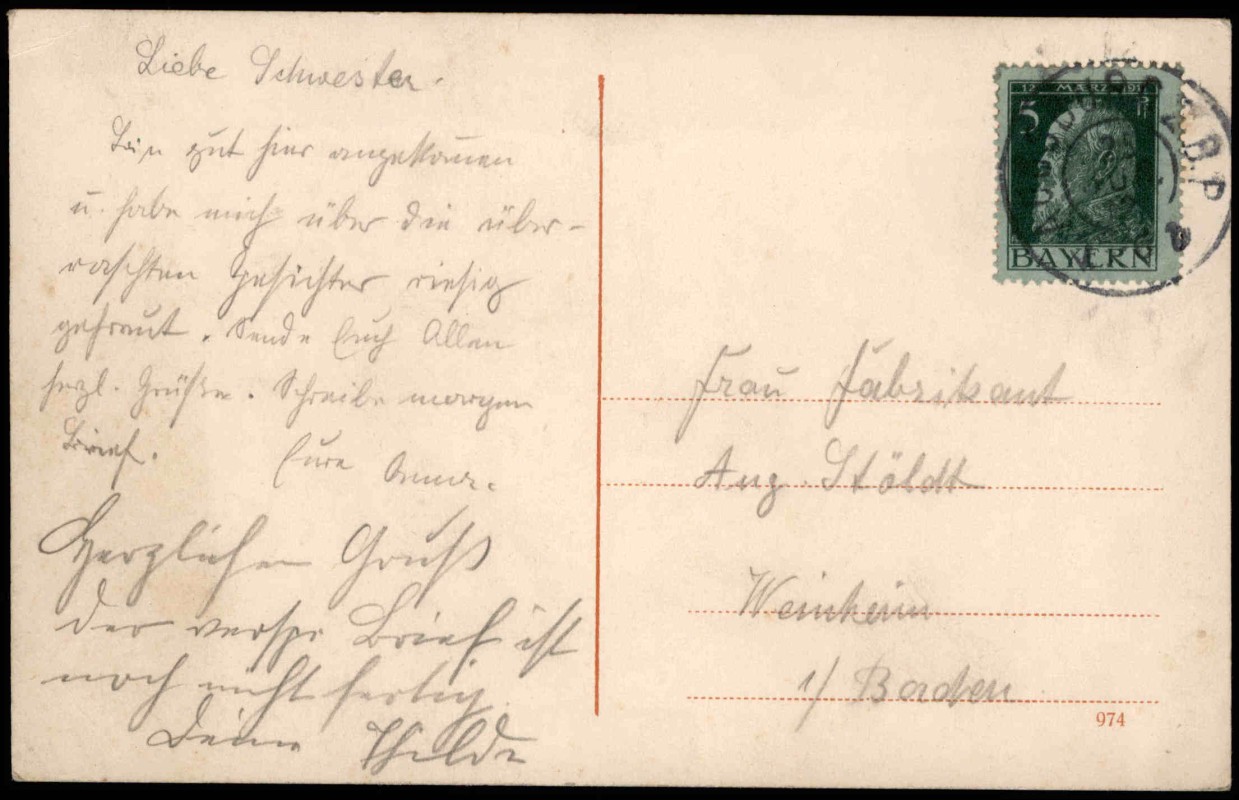 Liebe Schwester.
Bin gut hier angekommen
u. habe mich über die über-
raschten Gesichter riesig
gefreut. Sende Euch Allen
herzl. Grüße. Schreibe morgen
Brief. Eure
Herzlichen Gruß
der verspr Brief ist
noch nicht fertig.
Deine Thilde
12. MÆRZ 1911
5 Pf
BAYERN
Frau Fabrikant
Aug. Stöldt
Weinheim
i/ Baden
974